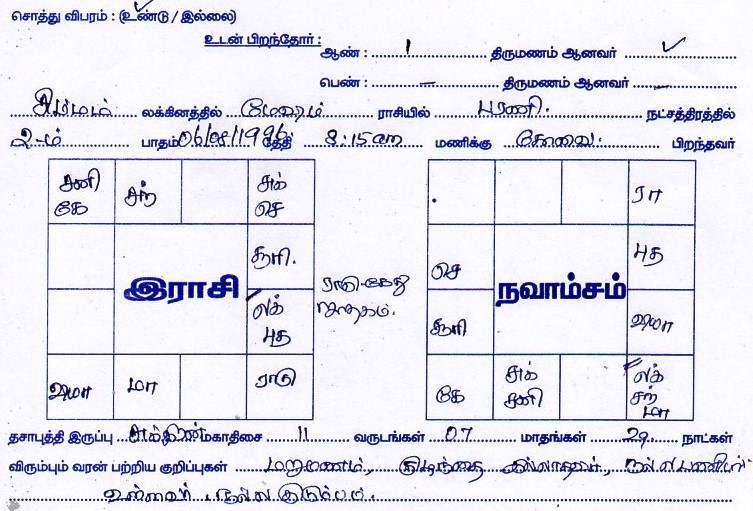 சொத்து விபரம் : (உண்டு / இல்லை)
உடன் பிறந்தோர் :
ஆண் : 1 திருமணம் ஆனவர் ✓
பெண் : – திருமணம் ஆனவர் –
சிம்மம் லக்கினத்தில் மேஷம் ராசியில் பரணி. நட்சத்திரத்தில்
2-ம் பாதம் 06/08/1996 தேதி 8:15am மணிக்கு கோவை. பிறந்தவர்
சனி கே
சந்
சுக் செ
சூரி.
லக் புத
ராகு
மா
குரு
இராசி
ராகு-கேது ஜாதகம்.
ரா
புத
குரு
லக் சந் மா
சுக் சனி
கே
சூரி
செ
நவாம்சம்
தசாபுத்தி இருப்பு சுக்கிரன் மகாதிசை 11 வருடங்கள் 07 மாதங்கள் 29 நாட்கள்
விரும்பும் வரன் பற்றிய குறிப்புகள் மறுமணம், குழந்தை இல்லாதவர், நல்ல பணியில்
உள்ளவர், நல்ல குடும்பம்.